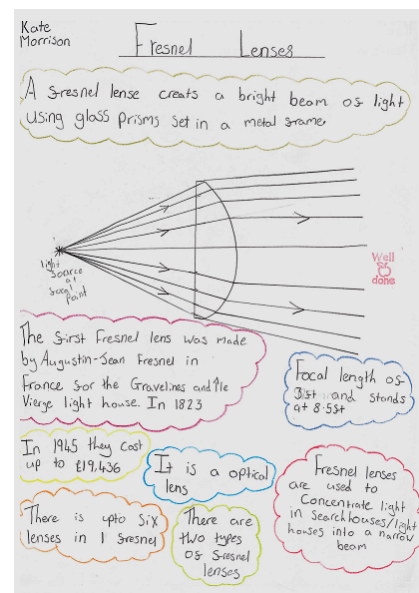 Kate
Morrison
Fresnel Lenses
A fresnel lense creats a bright beam of light
using glass prisms set in a metal frame.
Light
source
at
focal
point
Well
done
The first Fresnel lens was made
by Augustin-Jean Fresnel in
France for the Gravelines and Île
Vierge light house. In 1823
Focal length of
3ft and stands
at 8.5ft
In 1945 they cost
up to £19,436
It is a optical
lens
Fresnel lenses
are used to
Concentrate light
in searchlouses/light
houses into a narrow
beam
There is upto six
lenses in 1 fresnel
There are
two types
of fresnel
lenses